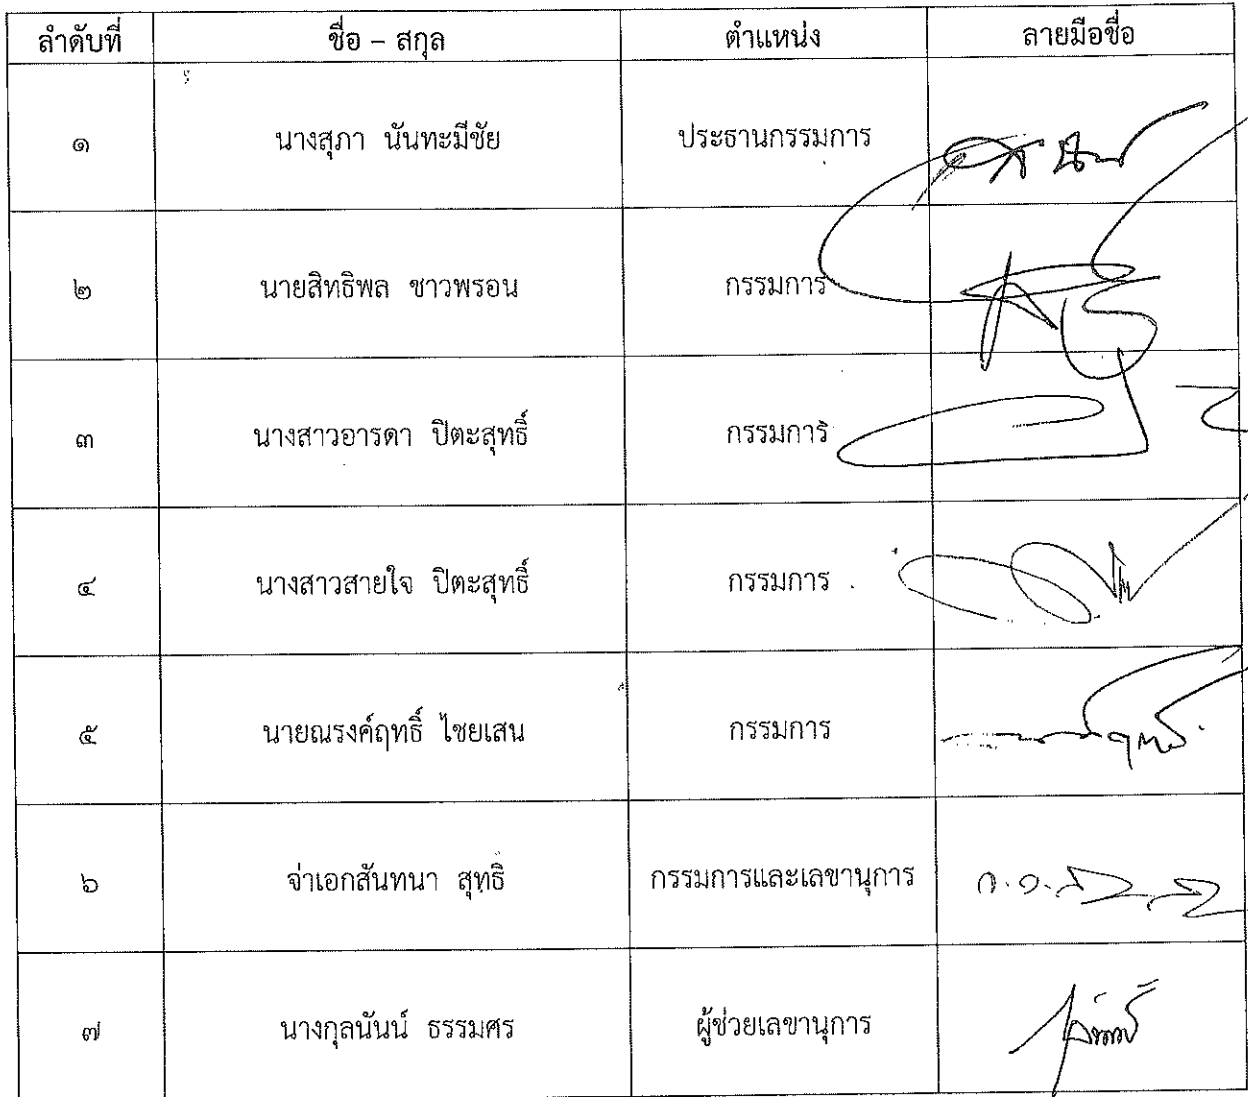 ลำดับที่ ชื่อ – สกุล ตำแหน่ง ลายมือชื่อ
๑ นางสุภา นันทะมีชัย ประธานกรรมการ
๒ นายสิทธิพล ชาวพรอน กรรมการ
๓ นางสาวอารดา ปิตะสุทธิ์ กรรมการ
๔ นางสาวสายใจ ปิตะสุทธิ์ กรรมการ
๕ นายณรงค์ฤทธิ์ ไชยเสน กรรมการ
๖ จ่าเอกสันทนา สุทธิ กรรมการและเลขานุการ
๗ นางกุลนันน์ ธรรมศร ผู้ช่วยเลขานุการ